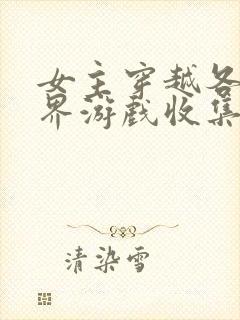 女主穿越各
界游戏收集
清染雪